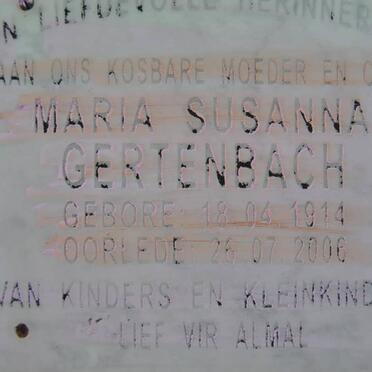 N LIEFDEVOLLE HERINNER
AAN ONS KOSBARE MOEDER EN O
MARIA SUSANNA
GERTENBACH
GEBORE: 18.04.1914
OORLEDE: 26.07.2006
VAN KINDERS EN KLEINKIND
LIEF VIR ALMAL